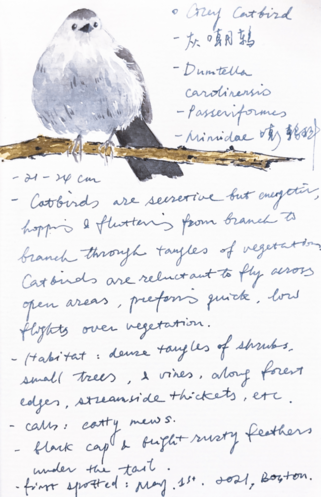 Grey Catbird
- 灰嘲鸫
- Dumtella
carolinensis
- Passeriformes
- Mimidae 嘲鸫科
- 21-24 cm
- Catbirds are secretive but energetic,
hopping & fluttering from branch to
branch through tangles of vegetation
Catbirds are reluctant to fly across
open areas, preferring quick, low
flights over vegetation.
- Habitat: dense tangles of shrubs,
small trees, & vines, along forest
edges, streamside thickets, etc.
- calls: catty mews.
- black cap & bright rusty feathers
under the tail.
- first spotted: May. 1st. 2021, Boston.